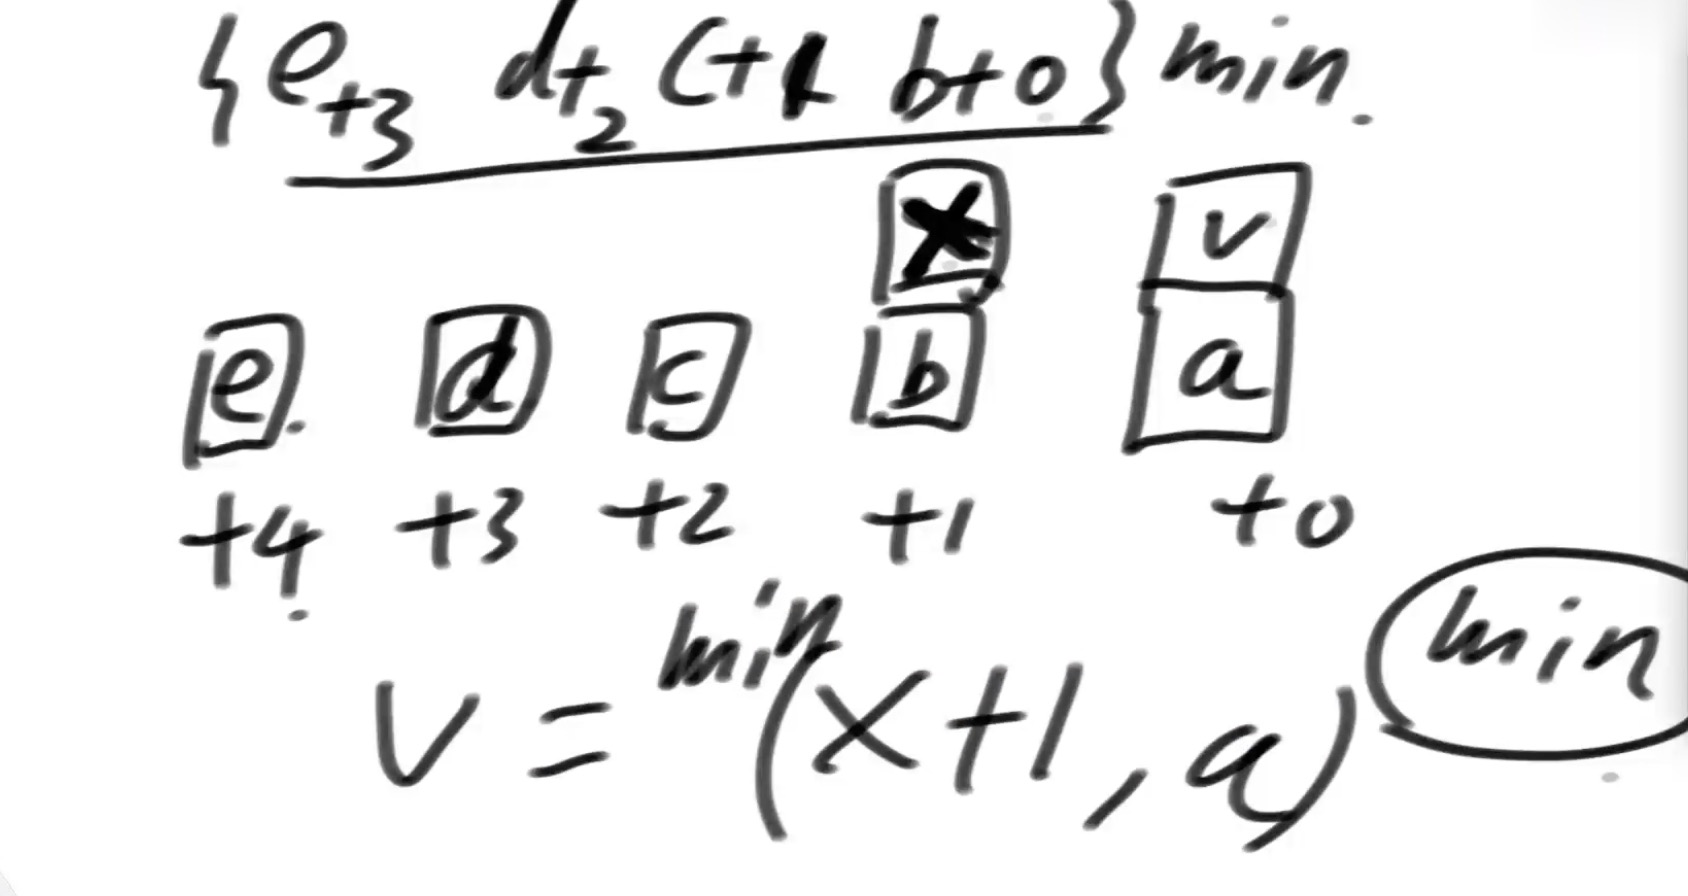 {e+3 d+2 c+1 b+0} min
x v
e d c b a
+4 +3 +2 +1 +0
v = min(x+1, a) min